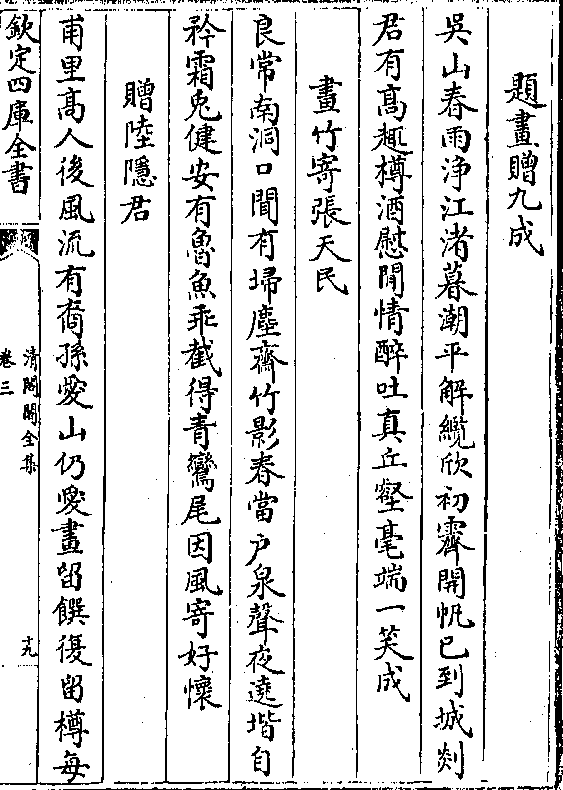 題畫贈九成
吳山春雨浄江渚暮潮平解纜欣初霽開帆已到城剡
君有髙趣樽酒慰閒情醉吐真丘壑毫端一笑成
畫竹寄張天民
良常南洞口閒有埽塵齋竹影春當户泉聲夜遶堦自
矜霜兎健安有魯魚乖截得青鸞尾因風寄好懐
贈陸隱君
甫里髙人後風流有裔孫愛山仍愛畫留饌復留樽每
欽定四庫全書
清閟閣全集
卷三
十九